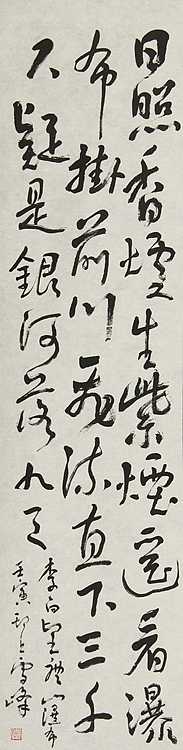 日照香爐生紫煙遙看瀑
布掛前川飛流直下三千
尺疑是銀河落九天
李白望廬山瀑布
壬寅邗上雪峰